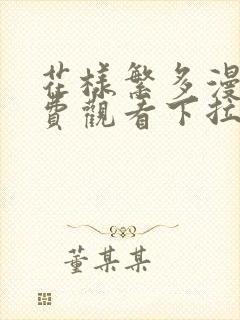 花様繁多漫
費觀看下拉
董某某